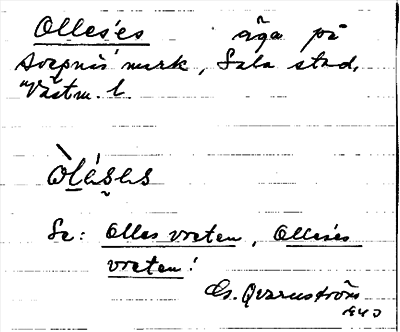 Olleséς äga på
Svepnis mark, Sala stad,
Västm. l.
Òlésəs
Se: Olles vreten, Ollesés
vreten!
Gs. Qvarnström
1940